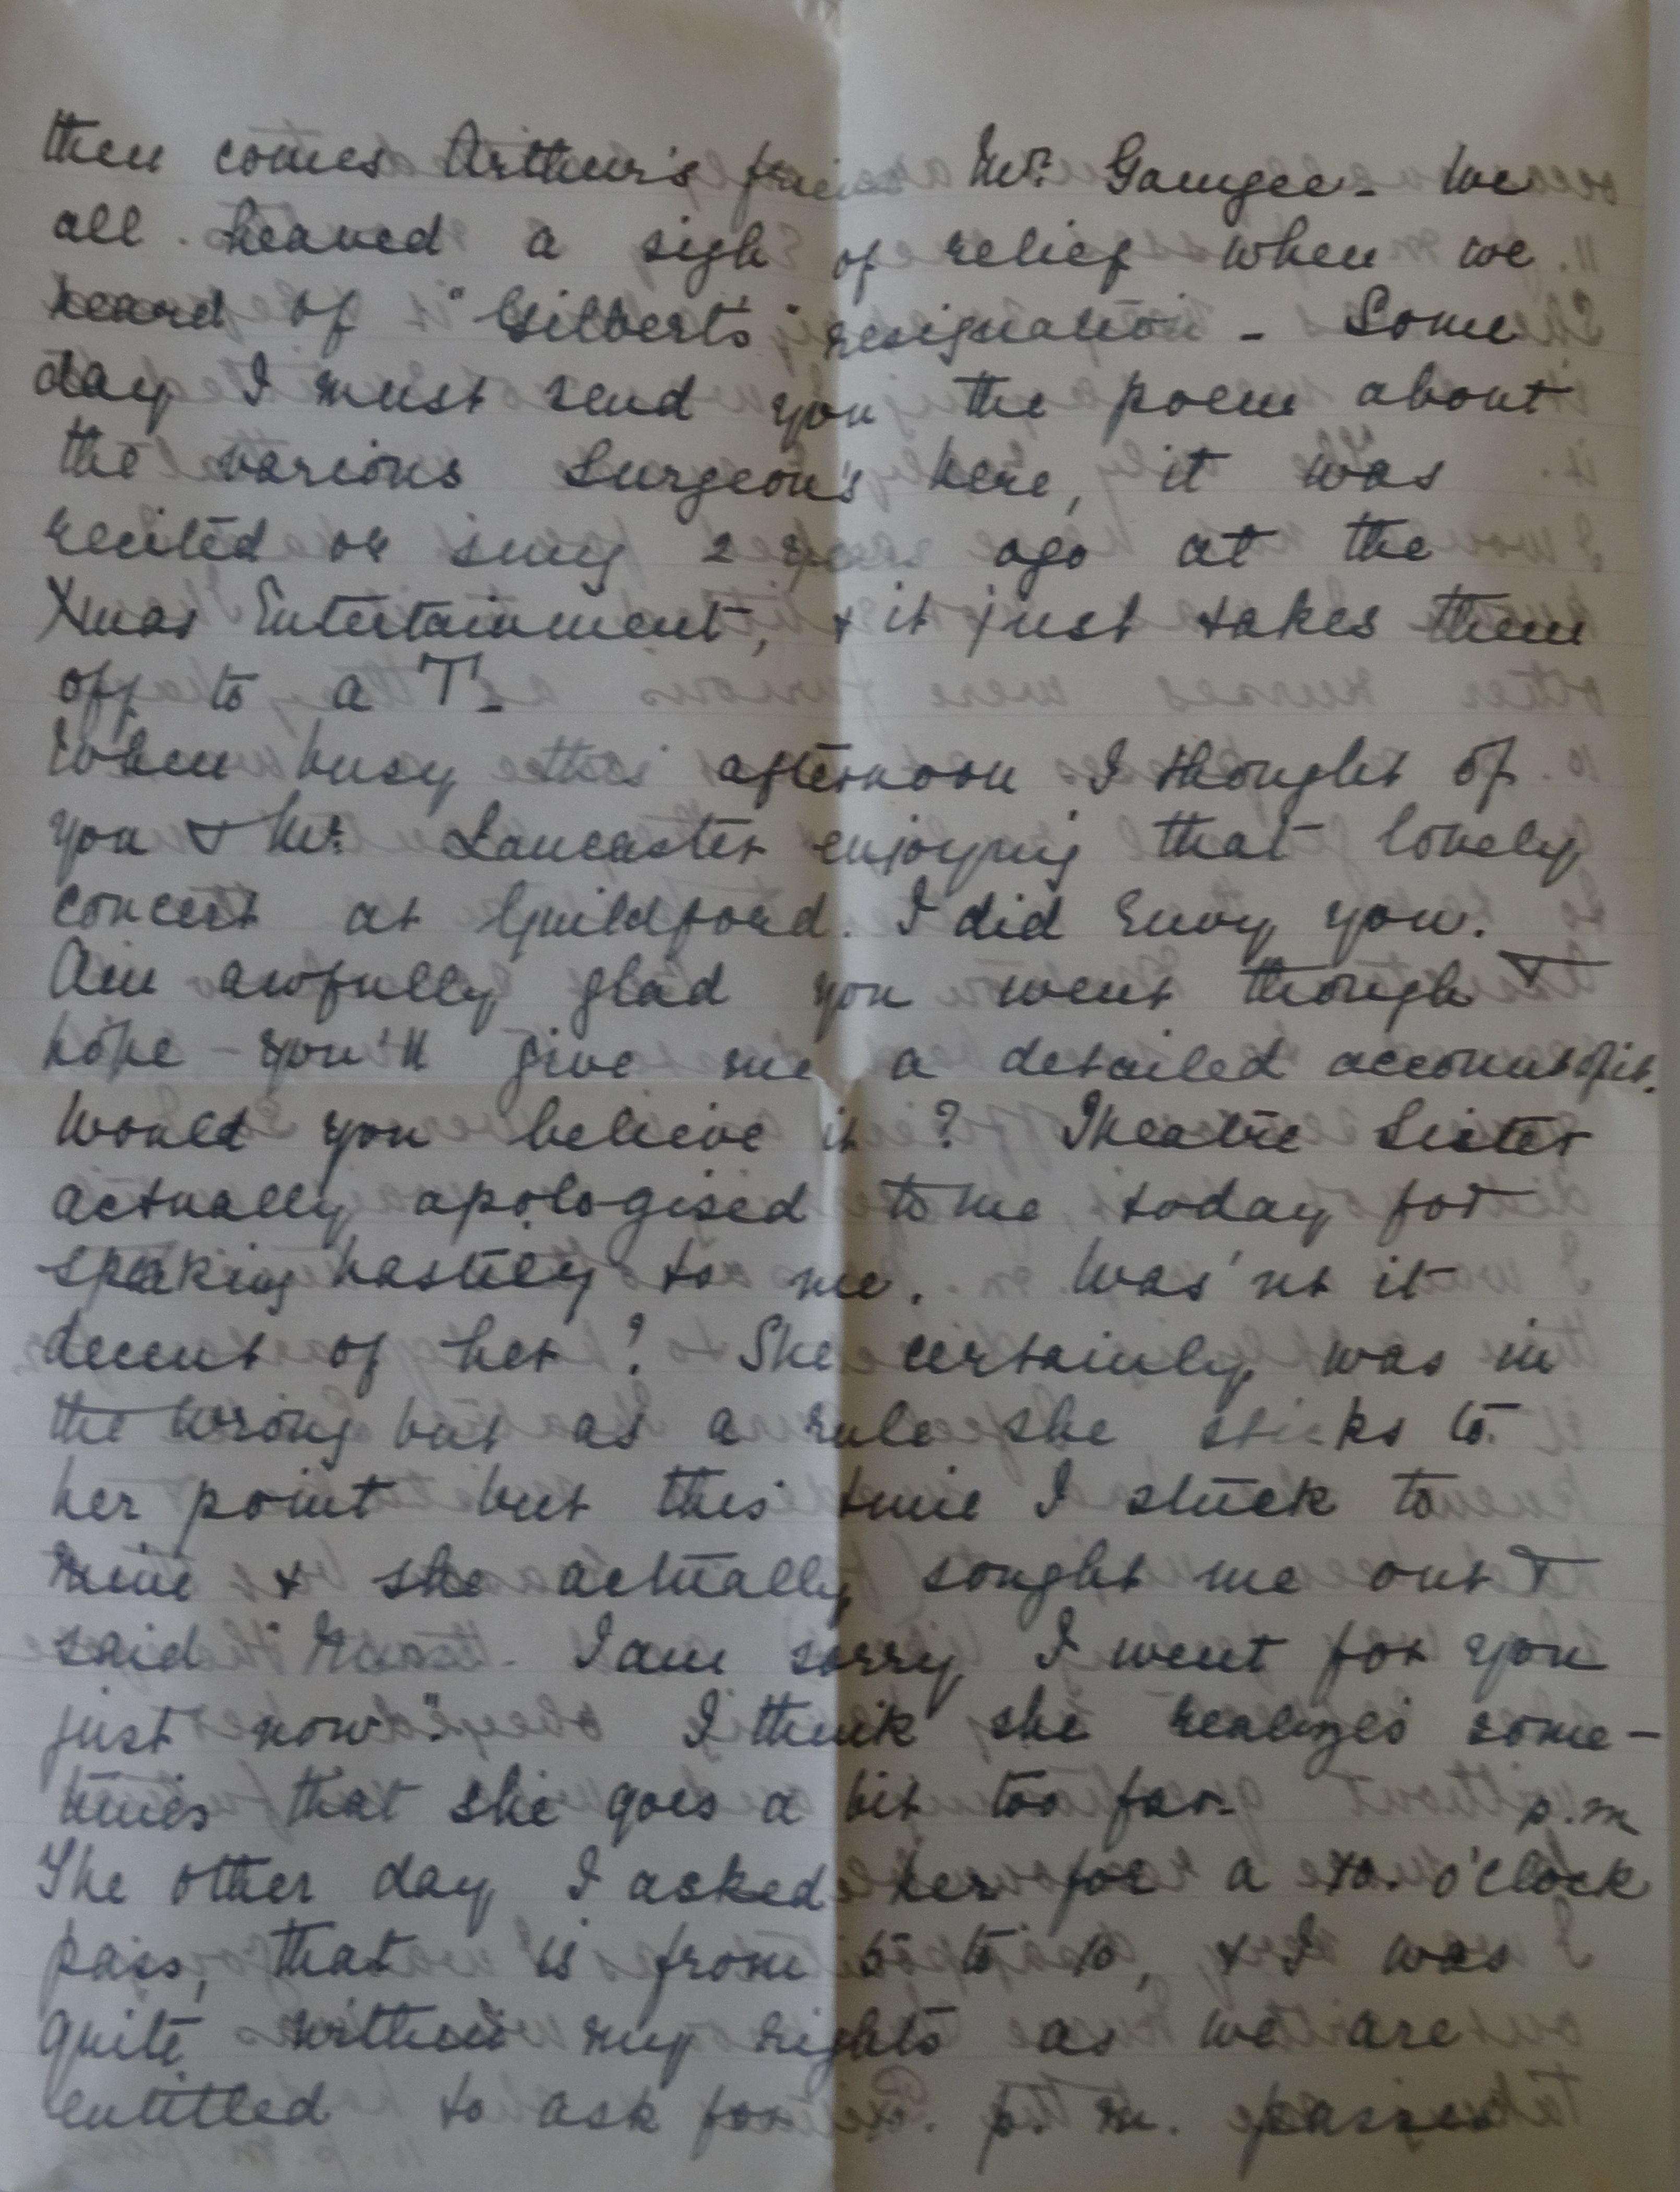 then comes Arthur's friend Mr. Gamgee - We
all heaved a sigh of relief when we
heard of "Gilbert's" resignation - Some
day I must send you the poem about
the various Surgeon's here, it was
recited or sung 2 years ago at the
Xmas Entertainment, & it just takes them
off to a T -
When busy this afternoon I thought of
you & Mr. Lancaster enjoying that lovely
concert at Guildford. I did Envy you.
Am awfully glad you went though &
hope - you'll give me a detailed account of it.
Would you believe it ? Theatre Sister
actually apologised to me today for
speaking hastily to me. Was'nt it
decent of her ? She certainly was in
the wrong but as a rule she sticks to
her point but this time I stuck to
mine & she actually sought me out &
said " I am sorry I went for you
just now". I think she realizes some -
times that she goes a bit too far - p.m
The other day I asked her for a 10. o'clock
pass, that is from 5 to 10, & I was
quite within my rights as we are
entitled to ask for 10. p. m. passes